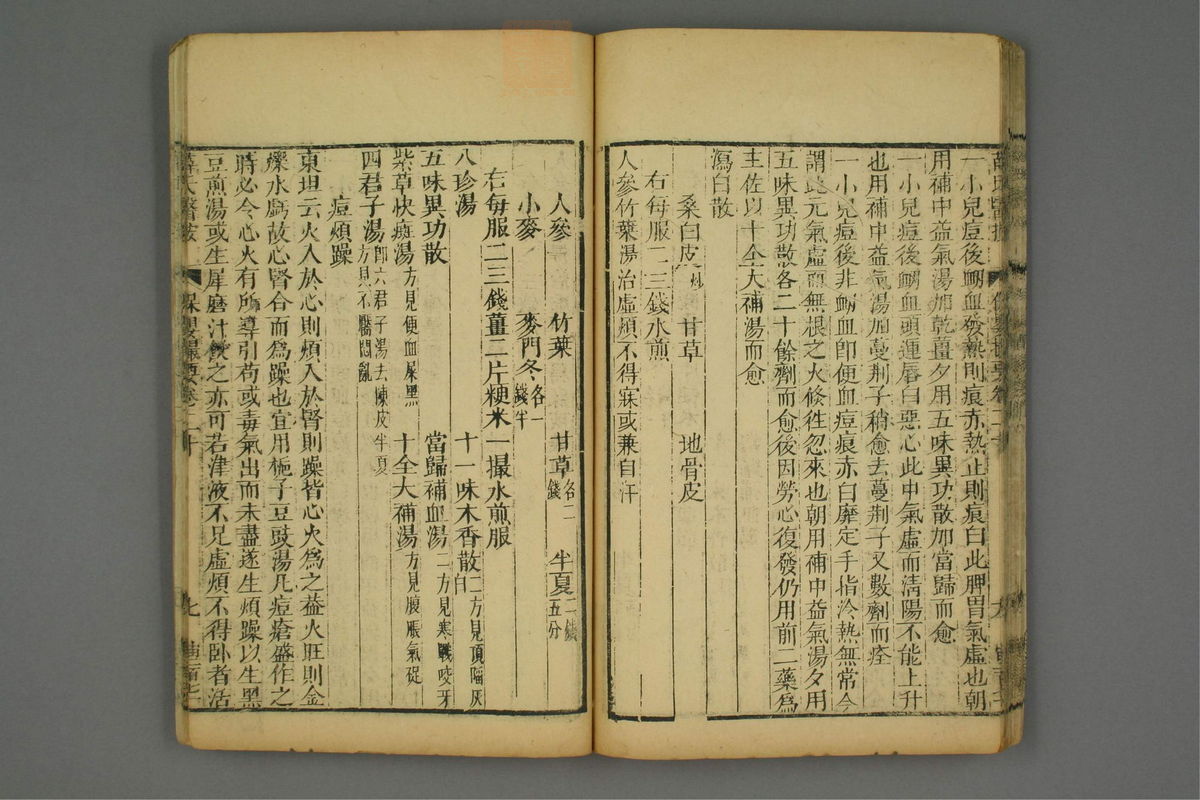 一小兒痘後衂血發熱則痕赤熱止則痕白此脾胃氣虛也朝
用補中益氣湯加乾薑夕用五味異功散加當歸而愈
一小兒痘後衂血頭運唇白惡心此中氣虛而淸陽不能上升
也用補中益氣湯加蔓荆子稍愈去蔓荆子又數劑而痊
一小兒痘後非衂血卽便血痘痕赤白靡定手指冷熱無常余
謂此元氣虛而無根之火倐徃忽來也朝用補中益氣湯夕用
五味異功散各二十餘劑而愈後因勞心復發仍用前二藥為
主佐以十全大補湯而愈
瀉白散
桑白皮炒 甘草 地骨皮
右每服一二錢水煎
人參竹葉湯治虛煩不得寐或兼自汗
人參 竹葉 甘草各二錢 半夏二錢五分
小麥 麥門冬各一錢半
右每服二三錢薑二片粳米一撮水煎服
八珍湯 十一味木香散二方見頂陷灰白
五味異功散 當歸補血湯二方見寒戰咬牙
紫草快癍湯方見便血屎黑 十全大補湯方見腹脹氣促
四君子湯卽六君子湯去陳皮半夏方見不靨悶亂
痘煩躁
東坦云火入於心則煩入於腎則躁皆心火爲之葢火旺則金
爍水虧故心腎合而爲躁也宜用梔子豆豉湯凡痘瘡盛作之
時必令心火有所導引苟或毒氣出而未盡遂生煩躁以生黑
豆煎湯或生犀磨汁飲之亦可若津液不足虛煩不得卧者活
薛氏醫按 保嬰撮要卷二十 七